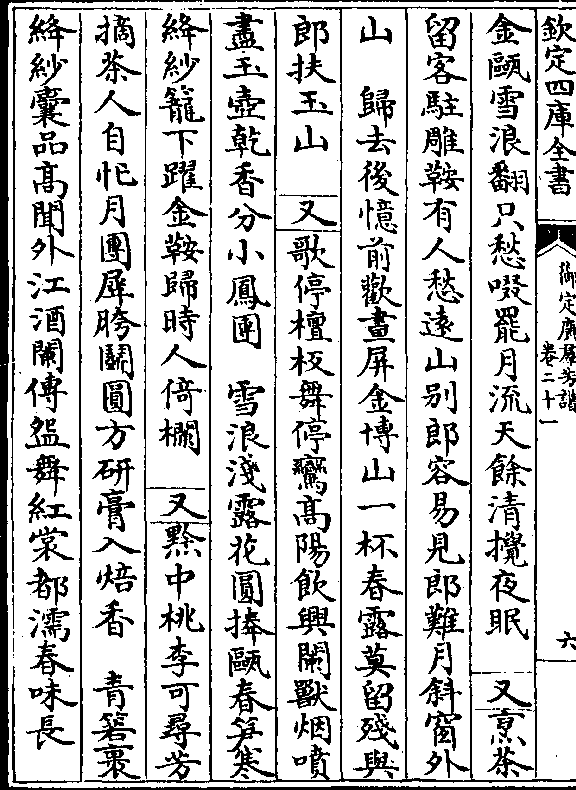 欽定四庫全書
御定廣羣芳譜
卷二十一
六
金甌雪浪翻只愁啜罷月流天餘清攪夜眠　又烹茶
留客駐雕鞍有人愁遠山别郎容易見郎難月斜窗外
山　歸去後憶前歡畫屏金博山一杯春露莫留殘與
郎扶玉山　又歌停檀板舞停鸞髙陽飲興闌獸烟噴
盡玉壺乾香分小鳳團　雪浪淺露花圓捧甌春筍寒
絳紗籠下躍金鞍歸時人倚欄　又黔中桃李可尋芳
摘茶人自忙月團犀胯鬬圓方研膏入焙香　青箬裹
絳紗囊品髙聞外江酒闌傳盌舞紅裳都濡春味長